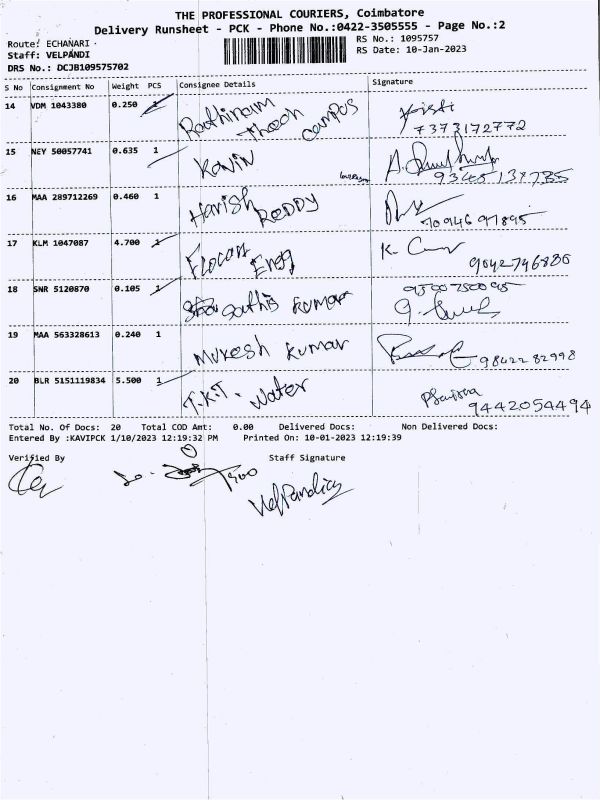 THE PROFESSIONAL COURIERS, Coimbatore
Delivery Runsheet - PCK - Phone No.:0422-3505555 - Page No.:2
Route: ECHANARI
RS No.: 1095757
Staff: VELPANDI
RS Date: 10-Jan-2023
DRS No.: DCJB109575702
S No Consignment No Weight PCS Consignee Details Signature
14 VDM 1043380 0.250 1 Rathinam Theach Campus
7373172772
15 NEY 50057741 0.635 1 Kavin
9345137785
16 MAA 289712269 0.460 1 Harish Reddy
7094697895
17 KLM 1047087 4.700 1 Elocan Engg
9042746886
18 SNR 5120870 0.105 1 Sathis Kumar
9500750095
19 MAA 563328613 0.240 1 Mukesh Kumar
9842282998
20 BLR 5151119834 5.500 1 T.K.T. Water
9442054494
Total No. Of Docs: 20 Total COD Amt: 0.00 Delivered Docs: Non Delivered Docs:
Entered By :KAVIPCK 1/10/2023 12:19:32 PM Printed On: 10-01-2023 12:19:39
Verified By Staff Signature
VelPandian